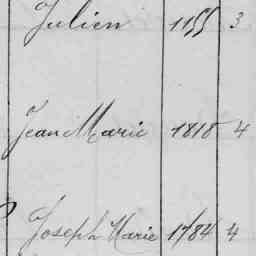 Julien 1155 3
Jean Marie 1818 4
Joseph Marie 1784 4